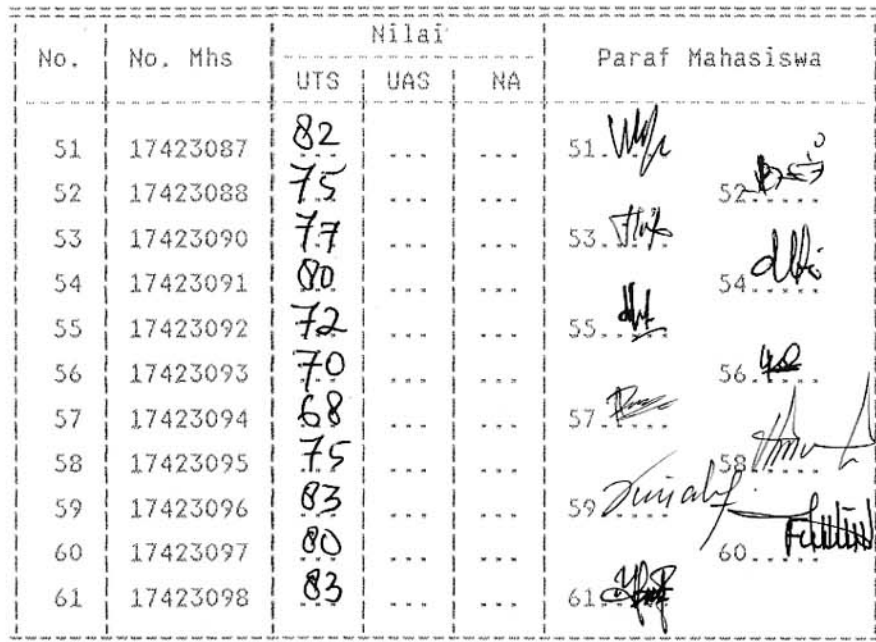 Nilai
No. No. Mhs Paraf Mahasiswa
UTS UAS NA
51 17423087 82 ... ... 51.
52 17423088 75 ... ... 52.
53 17423090 77 ... ... 53.
54 17423091 80 ... ... 54.
55 17423092 72 ... ... 55.
56 17423093 70 ... ... 56.
57 17423094 68 ... ... 57.
58 17423095 75 ... ... 58.
59 17423096 83 ... ... 59
60 17423097 80 ... ... 60.
61 17423098 83 ... ... 61.